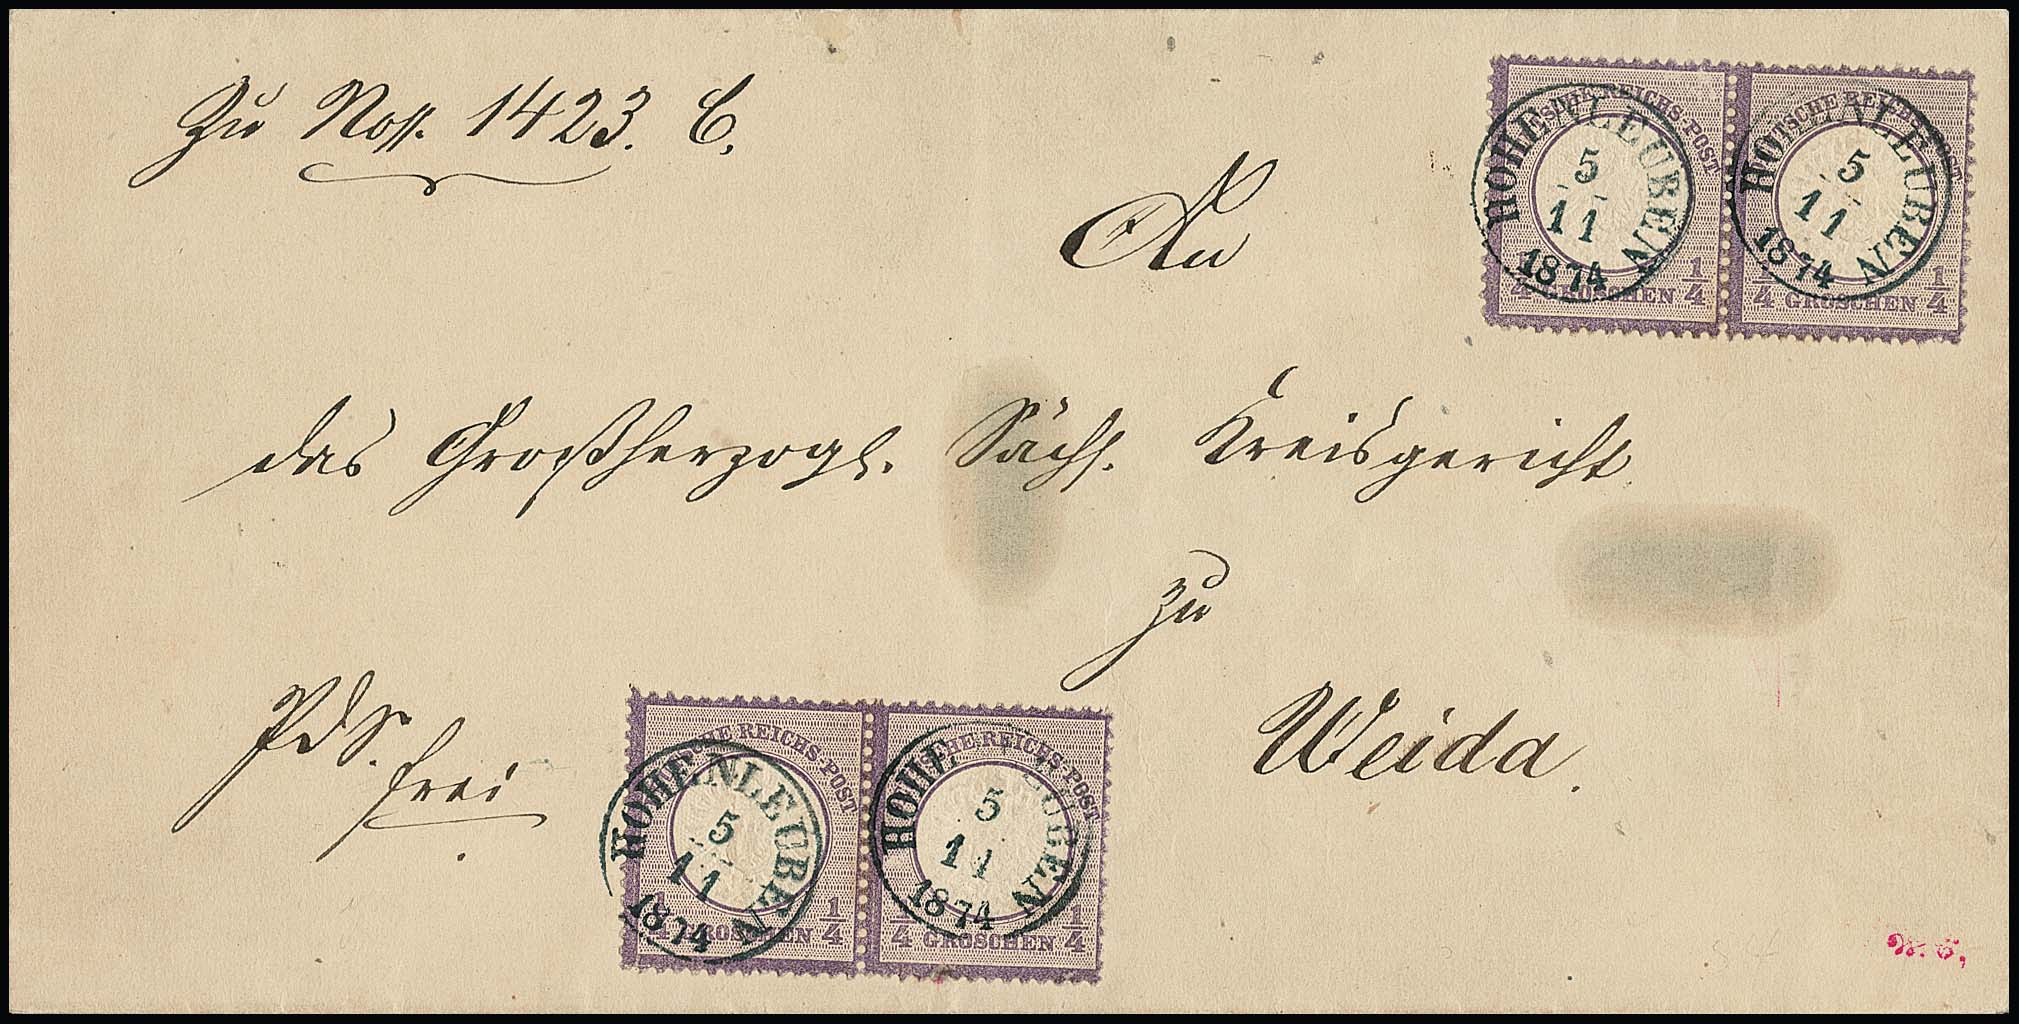 Zu Noss. 1423. C.
An
das Großherzogl. Sächs. Kreisgericht
zu
Weida.
frei
DEUTSCHE REICHS-POST
1/4 GROSCHEN 1/4
HOHENLEUBEN
5
11
1874
DEUTSCHE REICHS-POST
1/4 GROSCHEN 1/4
HOHENLEUBEN
5
11
1874
DEUTSCHE REICHS-POST
1/4 GROSCHEN 1/4
HOHENLEUBEN
5
11
1874
DEUTSCHE REICHS-POST
1/4 GROSCHEN 1/4
HOHENLEUBEN
5
11
1874